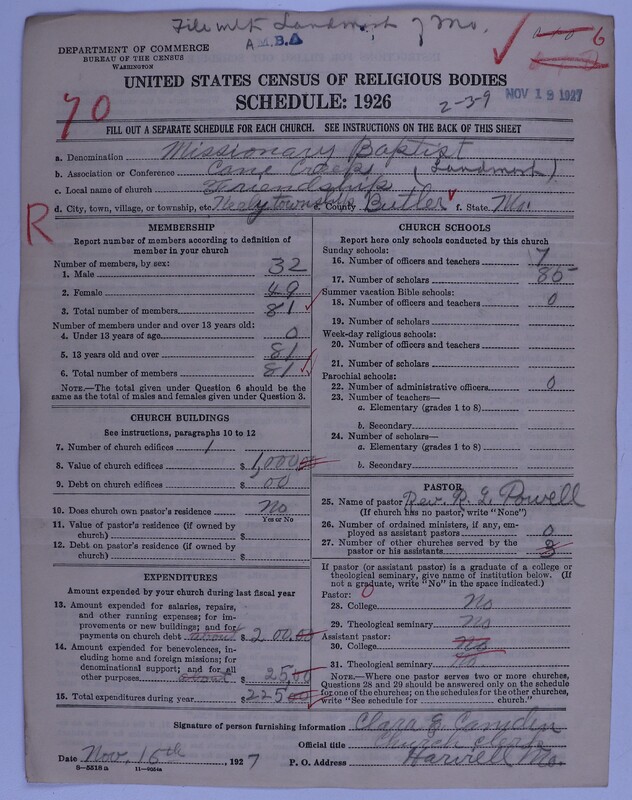 File with Landmark of Mo.
A.M.B.A
6
DEPARTMENT OF COMMERCE
BUREAU OF THE CENSUS
WASHINGTON
UNITED STATES CENSUS OF RELIGIOUS BODIES
SCHEDULE: 1926
2-3-9
NOV 19 1927
70
FILL OUT A SEPARATE SCHEDULE FOR EACH CHURCH. SEE INSTRUCTIONS ON THE BACK OF THIS SHEET
a. Denomination Missionary Baptist
b. Association or Conference Cane Creek (Landmark)
c. Local name of church Friendship
d. City, town, village, or township, etc. Neely township e. County Butler f. State Mo.
R
MEMBERSHIP
Report number of members according to definition of
member in your church
Number of members, by sex:
1. Male 32
2. Female 49
3. Total number of members 81
Number of members under and over 13 years old:
4. Under 13 years of age 0
5. 13 years old and over 81
6. Total number of members 81
NOTE.—The total given under Question 6 should be
same as the total of males and females given under Question 3.
CHURCH BUILDINGS
See instructions, paragraphs 10 to 12
7. Number of church edifices 1
8. Value of church edifices $1,000.00
9. Debt on church edifices $ 00
10. Does church own pastor's residence? No
Yes or No
11. Value of pastor's residence (if owned by
church) $
12. Debt on pastor's residence (if owned by
church) $
EXPENDITURES
Amount expended by your church during last fiscal year
13. Amount expended for salaries, repairs,
and other running expenses; for im-
provements or new buildings; and for
payments on church debt about $200.00
14. Amount expended for benevolences, in-
cluding home and foreign missions; for
denominational support; and for all
other purposes about $25.00
15. Total expenditures during year $225.00
CHURCH SCHOOLS
Report here only schools conducted by this church
Sunday schools:
16. Number of officers and teachers 7
17. Number of scholars 85
Summer vacation Bible schools:
18. Number of officers and teachers 0
19. Number of scholars
Week-day religious schools:
20. Number of officers and teachers
21. Number of scholars
Parochial schools:
22. Number of administrative officers 0
23. Number of teachers—
a. Elementary (grades 1 to 8)
b. Secondary
24. Number of scholars—
a. Elementary (grades 1 to 8)
b. Secondary
PASTOR
25. Name of pastor Rev. R. L. Powell
(If church has no pastor, write "None")
26. Number of ordained ministers, if any, em-
ployed as assistant pastors 0
27. Number of other churches served by the
pastor or his assistants 3
If pastor (or assistant pastor) is a graduate of a college or
theological seminary, give name of institution below. (If
not a graduate, write "No" in the space indicated.)
Pastor:
28. College No
29. Theological seminary No
Assistant pastor:
30. College No
31. Theological seminary No
NOTE.—Where one pastor serves two or more churches,
Questions 28 and 29 should be answered only on the schedule
for one of the churches; on the schedules for the other churches,
write "See schedule for church."
Signature of person furnishing information Clara E. Camden
Official title Church Clerk
Date Nov. 16th, 1927 P. O. Address Harviell Mo.
8-5518a 11-4054a